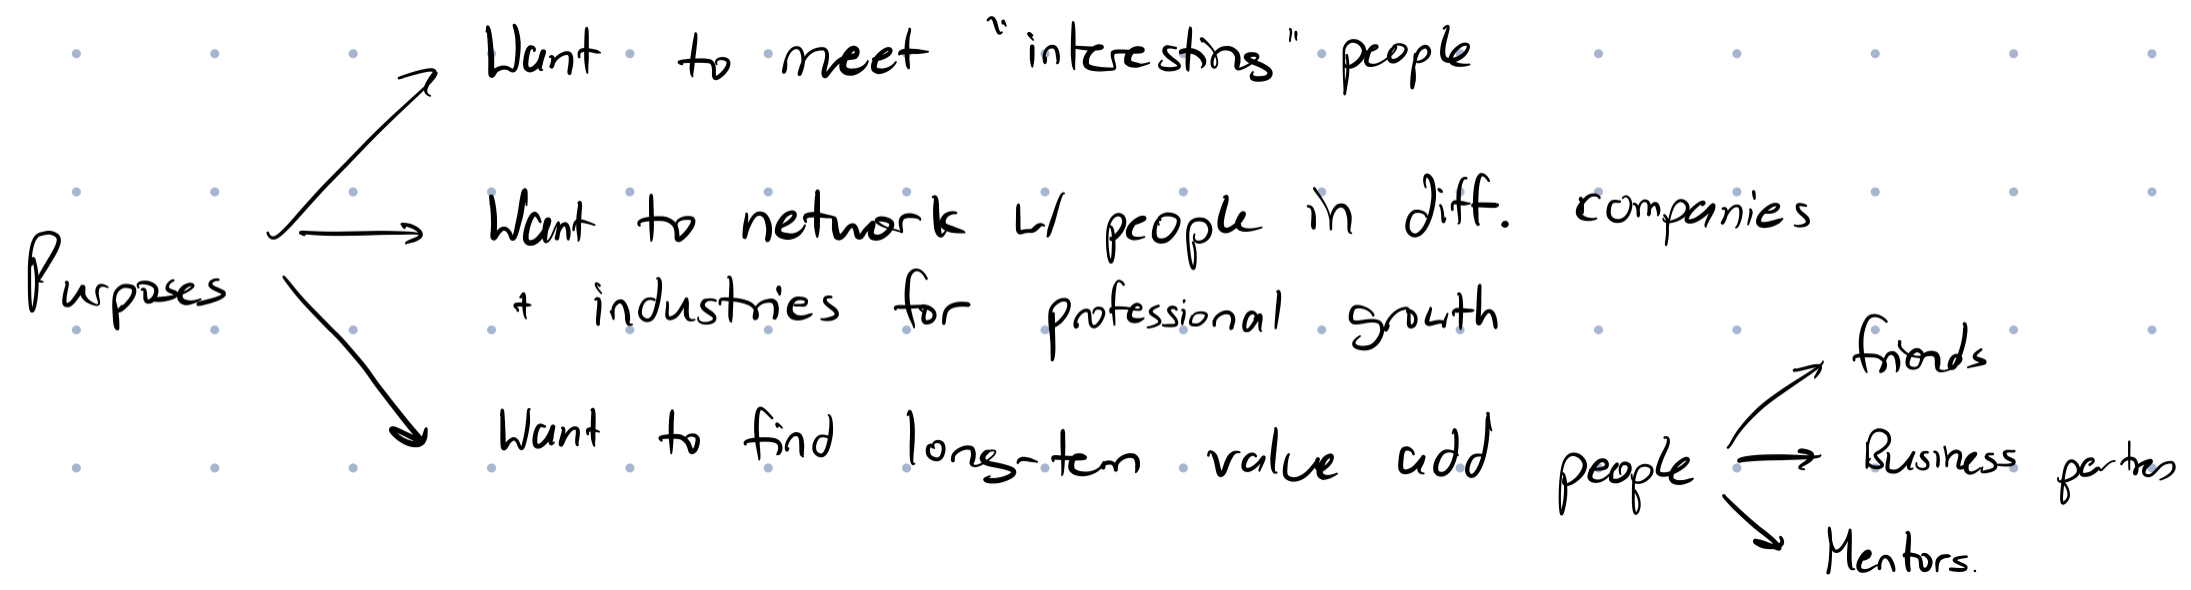 Want to meet "interesting" people
Purposes
Want to network w/ people in diff. companies
+ industries for professional growth
Want to find long-term value add people
friends
Business partners
Mentors.